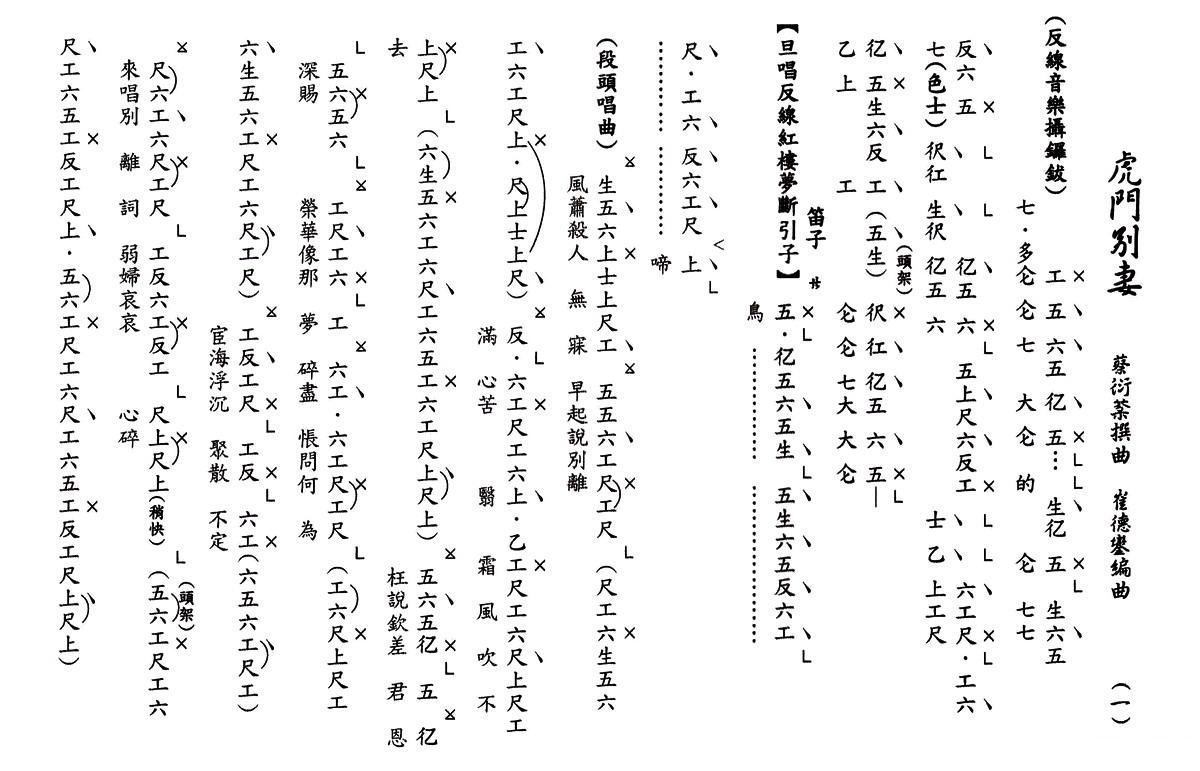 虎門別妻 蔡衍棻撰曲 崔德鑾編曲 (一)
(反線音樂攝鑼鈸) 工 五 六五 亿 五… 生亿 五 生六五
七．多仑仑七 大仑 的 仑七七
反六 五 亿五 六 五上尺六反工 六工尺．工六
七(色士)伬仜 生伬 亿五 六 士乙上工尺
亿 五生六反 工 (五生) (頭架) 伬仜亿五 六 五—
乙上 工 仑仑七大大仑
【旦唱反線紅樓夢斷引子】 笛子 サ 五．亿五六五生 五生六五反六工
鳥………………
尺．工六 反六工尺 上
……………… 啼
(段頭唱曲) 生五六上士上尺工 五五六工尺工尺 (尺工六生五六
風蕭殺人 無寐 早起說別離
工六工尺上．尺上士上尺) 反．六工尺工六上．乙工尺工六尺上尺工
滿 心苦 翳 霜 風 吹 不
上尺上 (六生五六工六尺工六五工六工尺上尺上) 五六五亿 五 亿
去 枉說欽差 君 恩
五六五六 工尺工六 工 六工．六工尺工尺 (工六尺上尺工
深賜 榮華像那 夢 碎盡 悵問何 為
六生五六工尺工六尺工尺) 工反工尺 工反 六工(六五六工尺工)
宦海浮沉 聚散 不定
尺六工六尺工尺 工反六工反工 尺上尺上(稍快) (頭架) (五六工尺工六
來唱別 離 詞 弱婦哀哀 心碎
尺工六五工反工尺上．五六工尺工六尺工六五工反工尺上尺上)